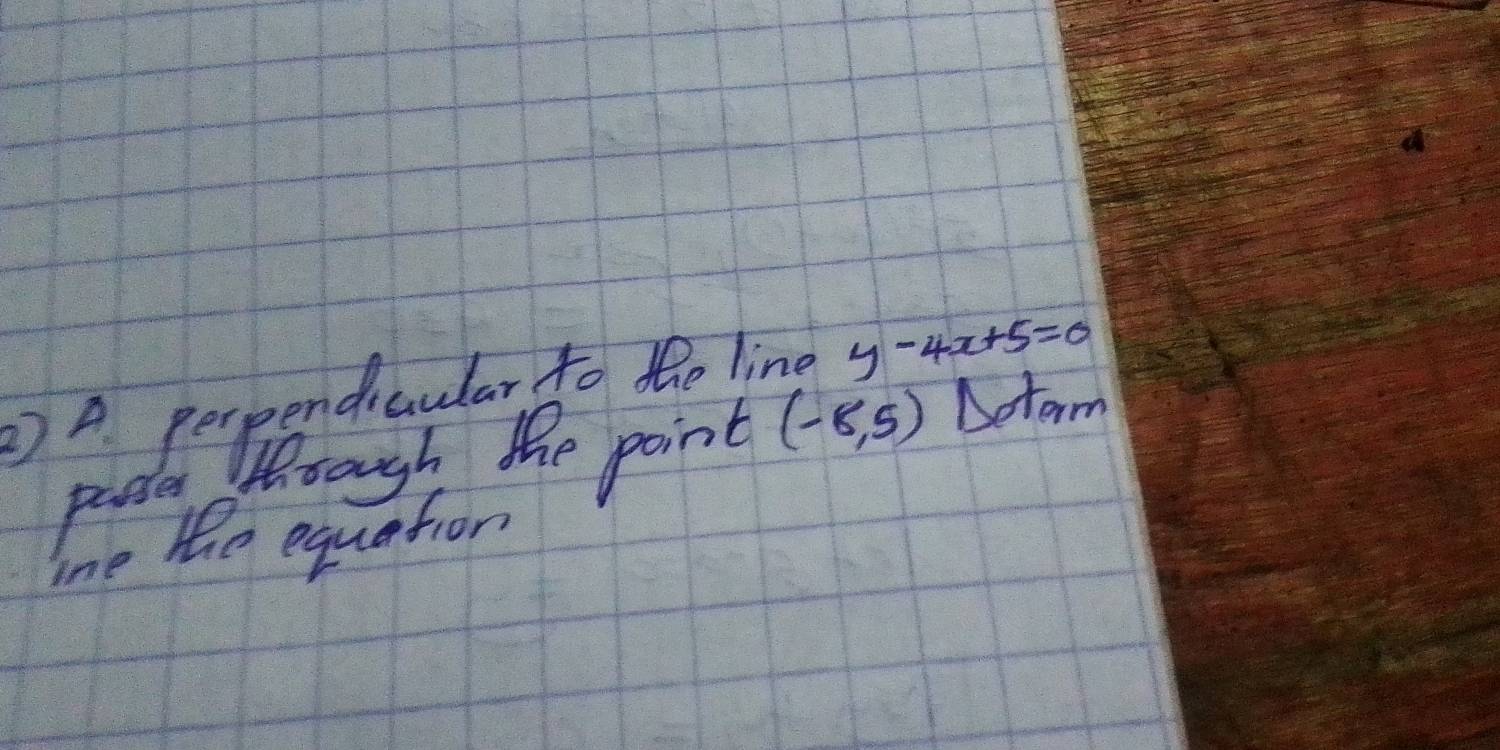 2) A perpendicular to the line y-4x+5=0
passes through the point (-8,5) Determ
ine the equation